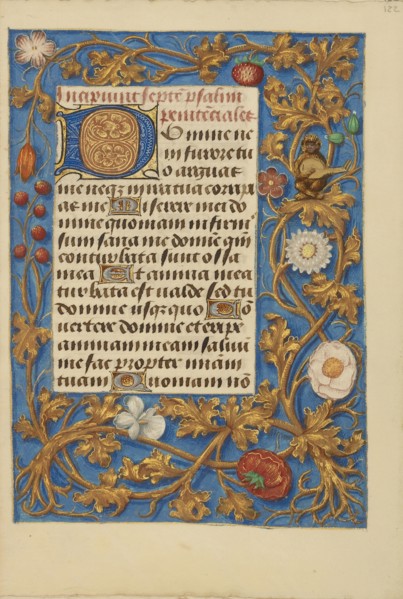 Incipiunt septe͂ psalmi
penite͂ciales
Domine ne
in furore tu
o arguas
me neqz in ira tua corripi
as me Miserere mei do
mine quoniam infirm͂
sum sana me domine qm͂
conturbata sunt ossa
mea Et anima mea
turbata est ualde sed tu
domine usqz quo Co͂
uertere domine et eripe
animam meam saluu͂
me fac propter miam͂
tuam Quoniam no͂